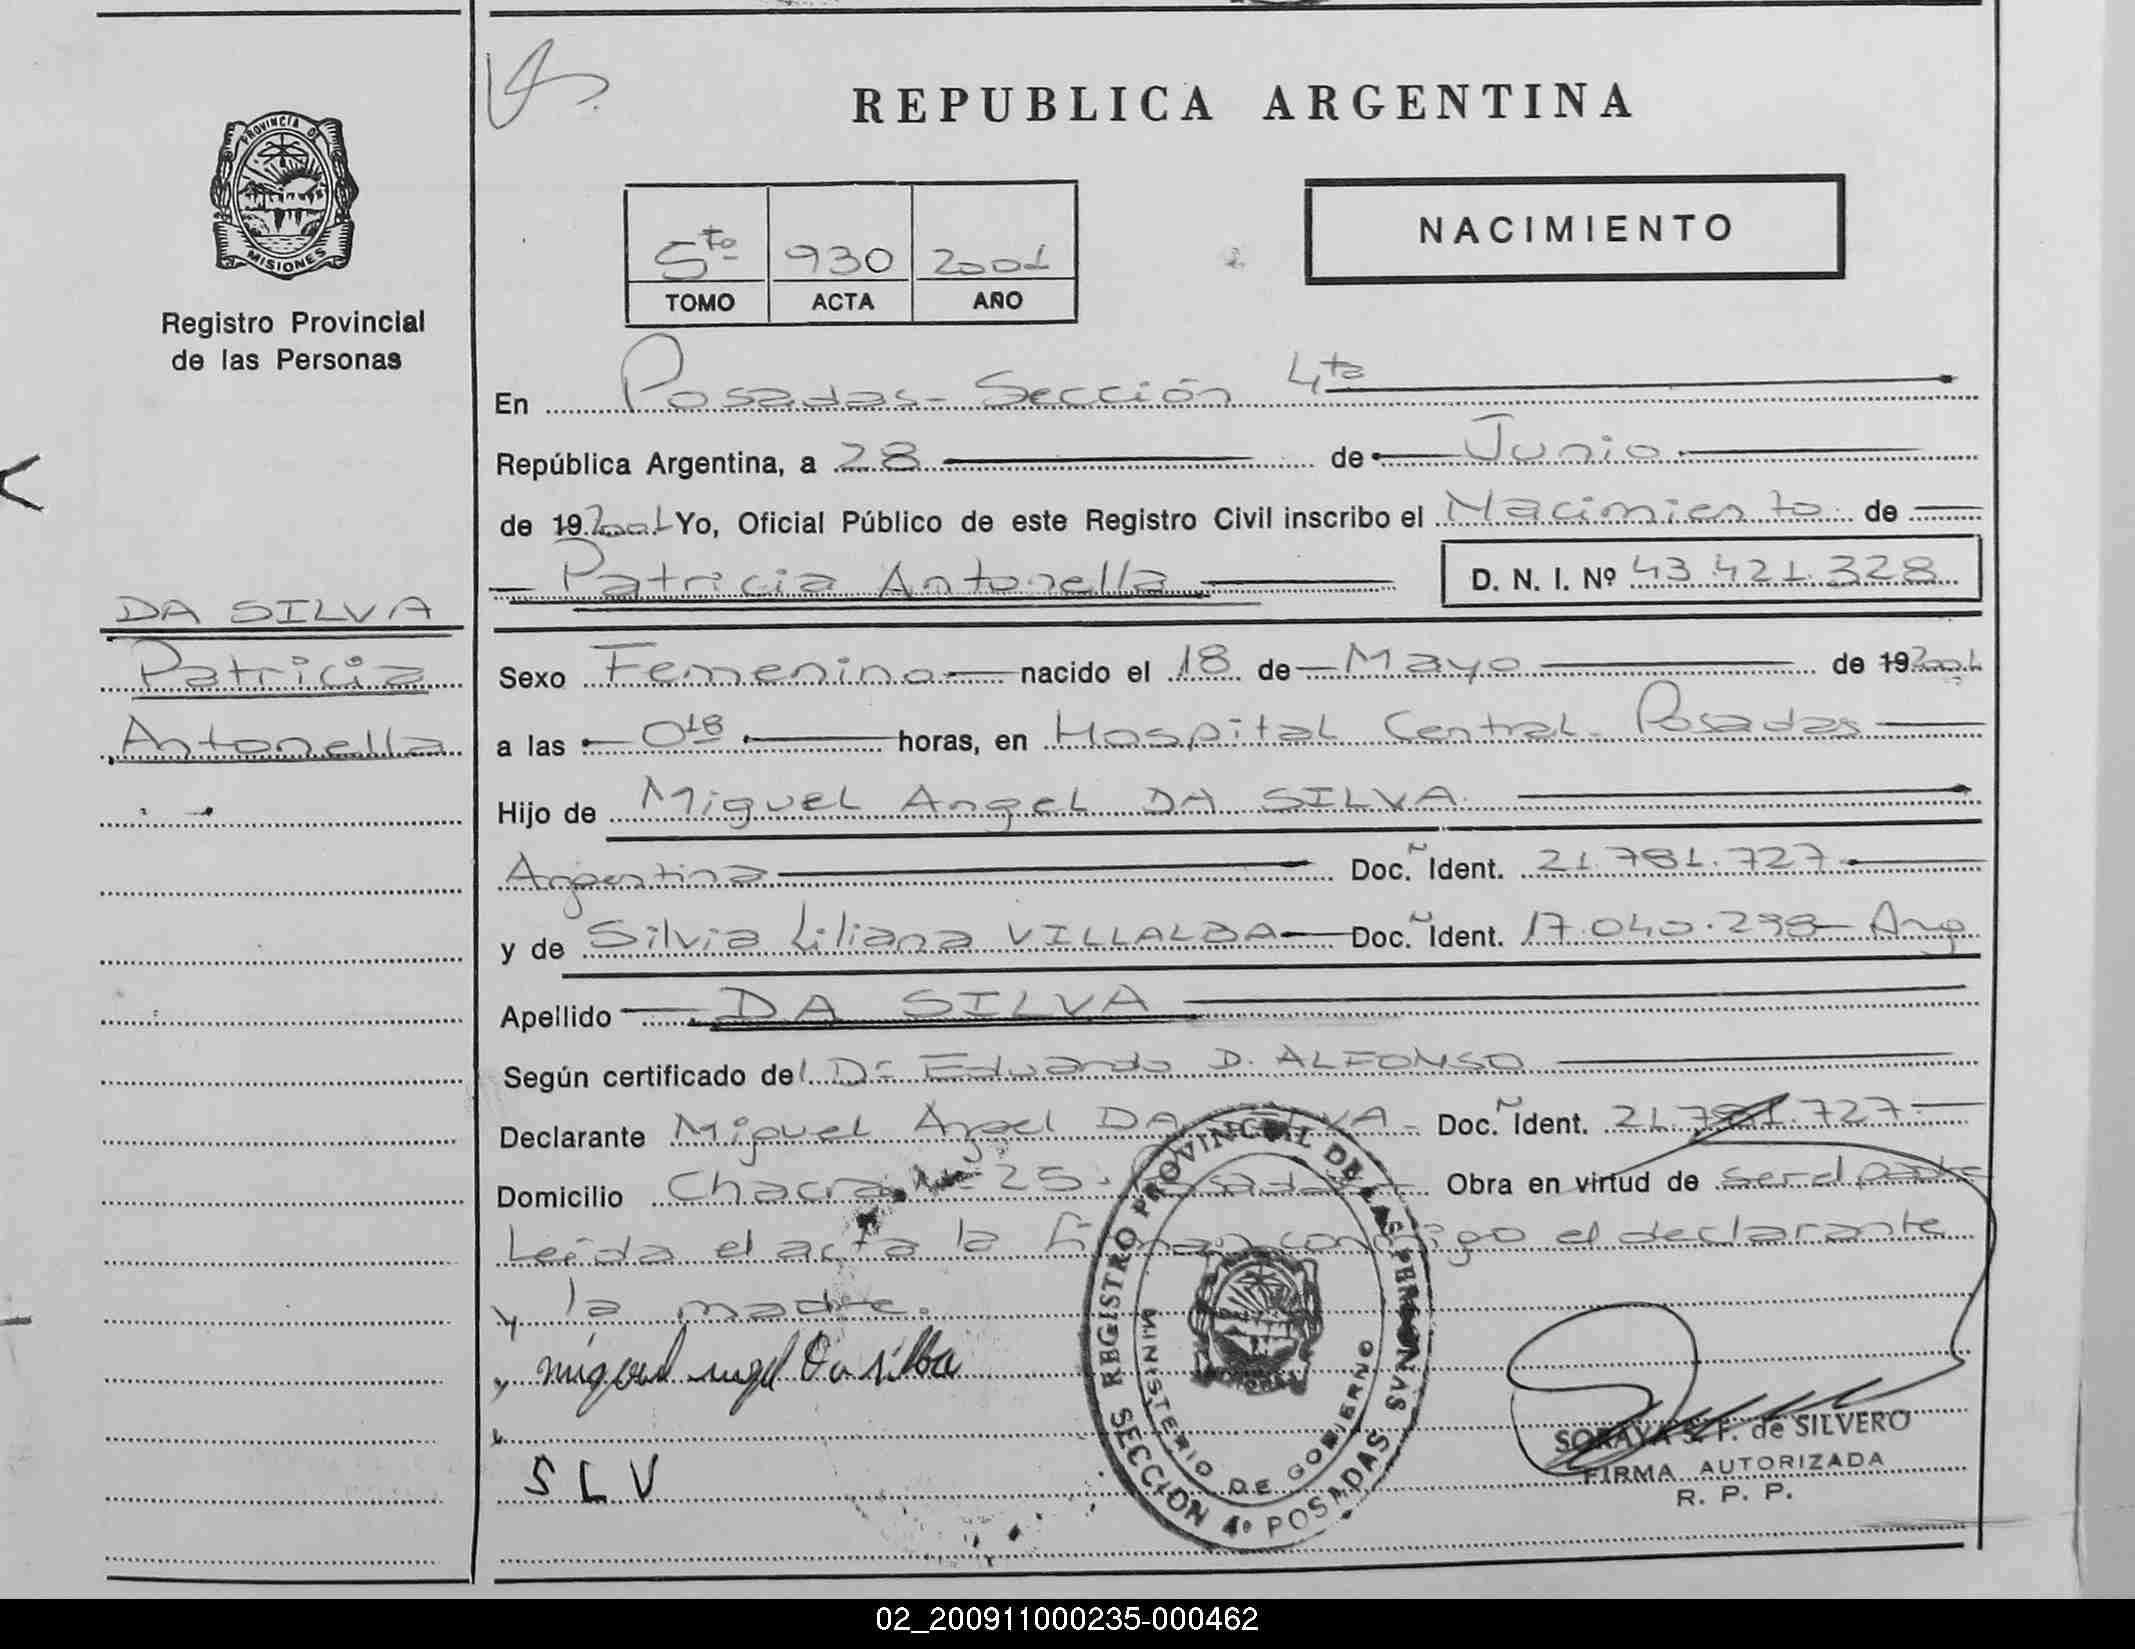 REPUBLICA ARGENTINA
PROVINCIA DE MISIONES
Registro Provincial
de las Personas
5to 930 2001
TOMO ACTA AÑO
NACIMIENTO
En Posadas - Sección 4ta
República Argentina, a 28 de Junio
de 19 2001 Yo, Oficial Público de este Registro Civil inscribo el Nacimiento de
Patricia Antonella D. N. I. Nº 43.421.328
DA SILVA
Patricia
Antonella
Sexo Femenino nacido el 18 de Mayo de 19 2001
a las 0 18 horas, en Hospital Central - Posadas
Hijo de Miguel Angel DA SILVA
Argentina Doc. Ident. 21.781.727
y de Silvia Liliana VILLALBA Doc. Ident. 17.040.298 - Arg
Apellido DA SILVA
Según certificado del Dr Eduardo D. ALFONSO
Declarante Miguel Angel DA SILVA - Doc. Ident. 21.781.727
Domicilio Chacra Nº 25 - Posadas Obra en virtud de ser el padre
Leída el acta la firman conmigo el declarante
y la madre.
miguel angel Da silba
S L V
REGISTRO PROVINCIAL DE LAS PERSONAS
MINISTERIO DE GOBIERNO
SECCION 4º POSADAS
SORAYA S. F. de SILVERO
FIRMA AUTORIZADA
R. P. P.
02_200911000235-000462